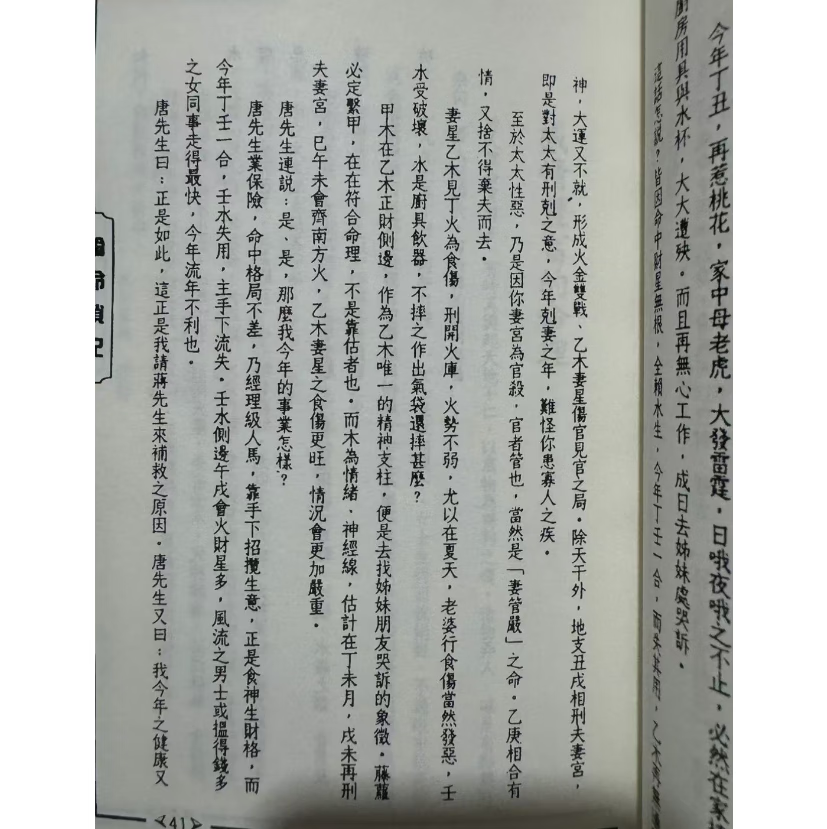 今年丁丑，再惹桃花，家中母老虎，大發雷霆，日哦夜哦之不止，必然在家
廚房用具與水杯，大大遭殃。而且再無心工作，成日去姊妹處哭訴。
這話怎說？皆因命中財星無根，全賴水生，今年丁壬一合，而失其用，乙木再無
神，大運又不就，形成火金雙戰、乙木妻星傷官見官之局。除天干外，地支丑戌相刑夫妻宮，
即是對太太有刑剋之意，今年剋妻之年，難怪你患寡人之疾。
至於太太性惡，乃是因你妻宮為官殺，官者管也，當然是「妻管嚴」之命。乙庚相合有
情，又捨不得棄夫而去。
妻星乙木見丁火為食傷，刑開火庫，火勢不弱，尤以在夏天，老婆行食傷當然發惡，壬
水受破壞，水是廚具飲器，不摔之作出氣袋還摔甚麼？
甲木在乙木正財側邊，作為乙木唯一的精神支柱，便是去找姊妹朋友哭訴的象徵。藤蘿
必定繫甲，在在符合命理，不是靠估者也。而木為情緒、神經線，估計在丁未月，戌未再刑
夫妻宮，巳午未會齊南方火，乙木妻星之食傷更旺，情況會更加嚴重。
唐先生連說：是、是，那麼我今年的事業怎樣？
唐先生業保險，命中格局不差，乃經理級人馬，靠手下招攬生意，正是食神生財格，而
今年丁壬一合，壬水失用，主手下流失。壬水側邊午戌會火財星多，風流之男士或搵得錢多
之女同事走得最快，今年流年不利也。
唐先生曰：正是如此，這正是我請蔣先生來補救之原因。唐先生又曰：我今年之健康又
命瑣記
41